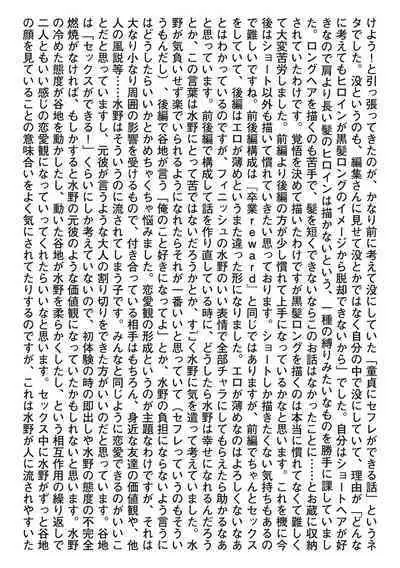 けよう!と引っ張ってきたのが、かなり前に考えて没にしていた「童貞にセフレができる話」というネ
タでした。没というのも、編集さんに見せて没とかではなく自分の中で没にしていて、理由が「どんな
に考えてもヒロインが黒髪ロングのイメージから脱却できないから」でした。自分はショートヘアが好
きなので肩より長い髪のヒロインは描かないという、一種の縛りみたいなものを勝手に課していまし
た。ロングヘアを描くのも苦手で、髪を短くできないならこのお話はなかったことに……とお蔵に収納
されていたわけです。覚悟を決めて描いたわけですが黒髪ロングを描くのは本当に慣れてなくて難しく
て大変苦労しました。前編より後編の方が少し慣れて上手になっているかなと思います。これを機に今
後はショート以外も描いて慣れていきたい思っております。ショートしか描きたくない気持ちもあるの
で難しいですね。前後編構成は「卒業reward」と同じではありますが、前編でちゃんとセックス
をしていて、後編はエロが薄めというまた違った形になりました。エロが薄めなのはよろしくないなあ
とはわかっているのですが、フィニッシュの水野のいい表情で全部チャラにしてもらえたら助かるなあ
と思っています。前後編で構成して話を作り直している時に、どうしたら水野は幸せになれるんだろう
とか、この言葉は水野にとって苦ではないだろうかとか、すごく水野に気を遣って考えていました。水
野が気負いせず楽でいられるようになれたらそれが一番いいと思っていて(セフレっていうのもそうい
うもんだし)、後編で谷地が言う「俺のこと好きになってよ」とか、水野の負担にならないよう言うに
はどうしたらいいかとかめちゃくちゃ悩みました。恋愛観の形成というのが主題なわけですが、それは
大なり小なり周囲の影響を受けるもので、付き合っている相手はもちろん、身近な友達の価値観や、他
人の風説等……水野はそういうのに流されてしまう子です。みんなと同じように恋愛できるのがいいこ
とだと思っていますし、元彼が言うような大人の割り切りをできた方がいいのだと思っています。谷地
は「セックスができる!」くらいにしか考えていないので、初体験の時の即出しや水野の態度の不完全
燃焼がなければ、もしかすると水野の元彼のような価値観になっていたかもしれないと思います。水野
の冷めた態度が谷地を動かしたし、動いた谷地が水野を柔らかくしたし、という相互作用の繰り返しで
二人ともいい感じの恋愛観になっていってくれたらいいなと思います。セックス中に水野がずっと谷地
の顔を見ていることの意味合いをよく気にされてたりするのですが、これは水野が人に流されやすいた